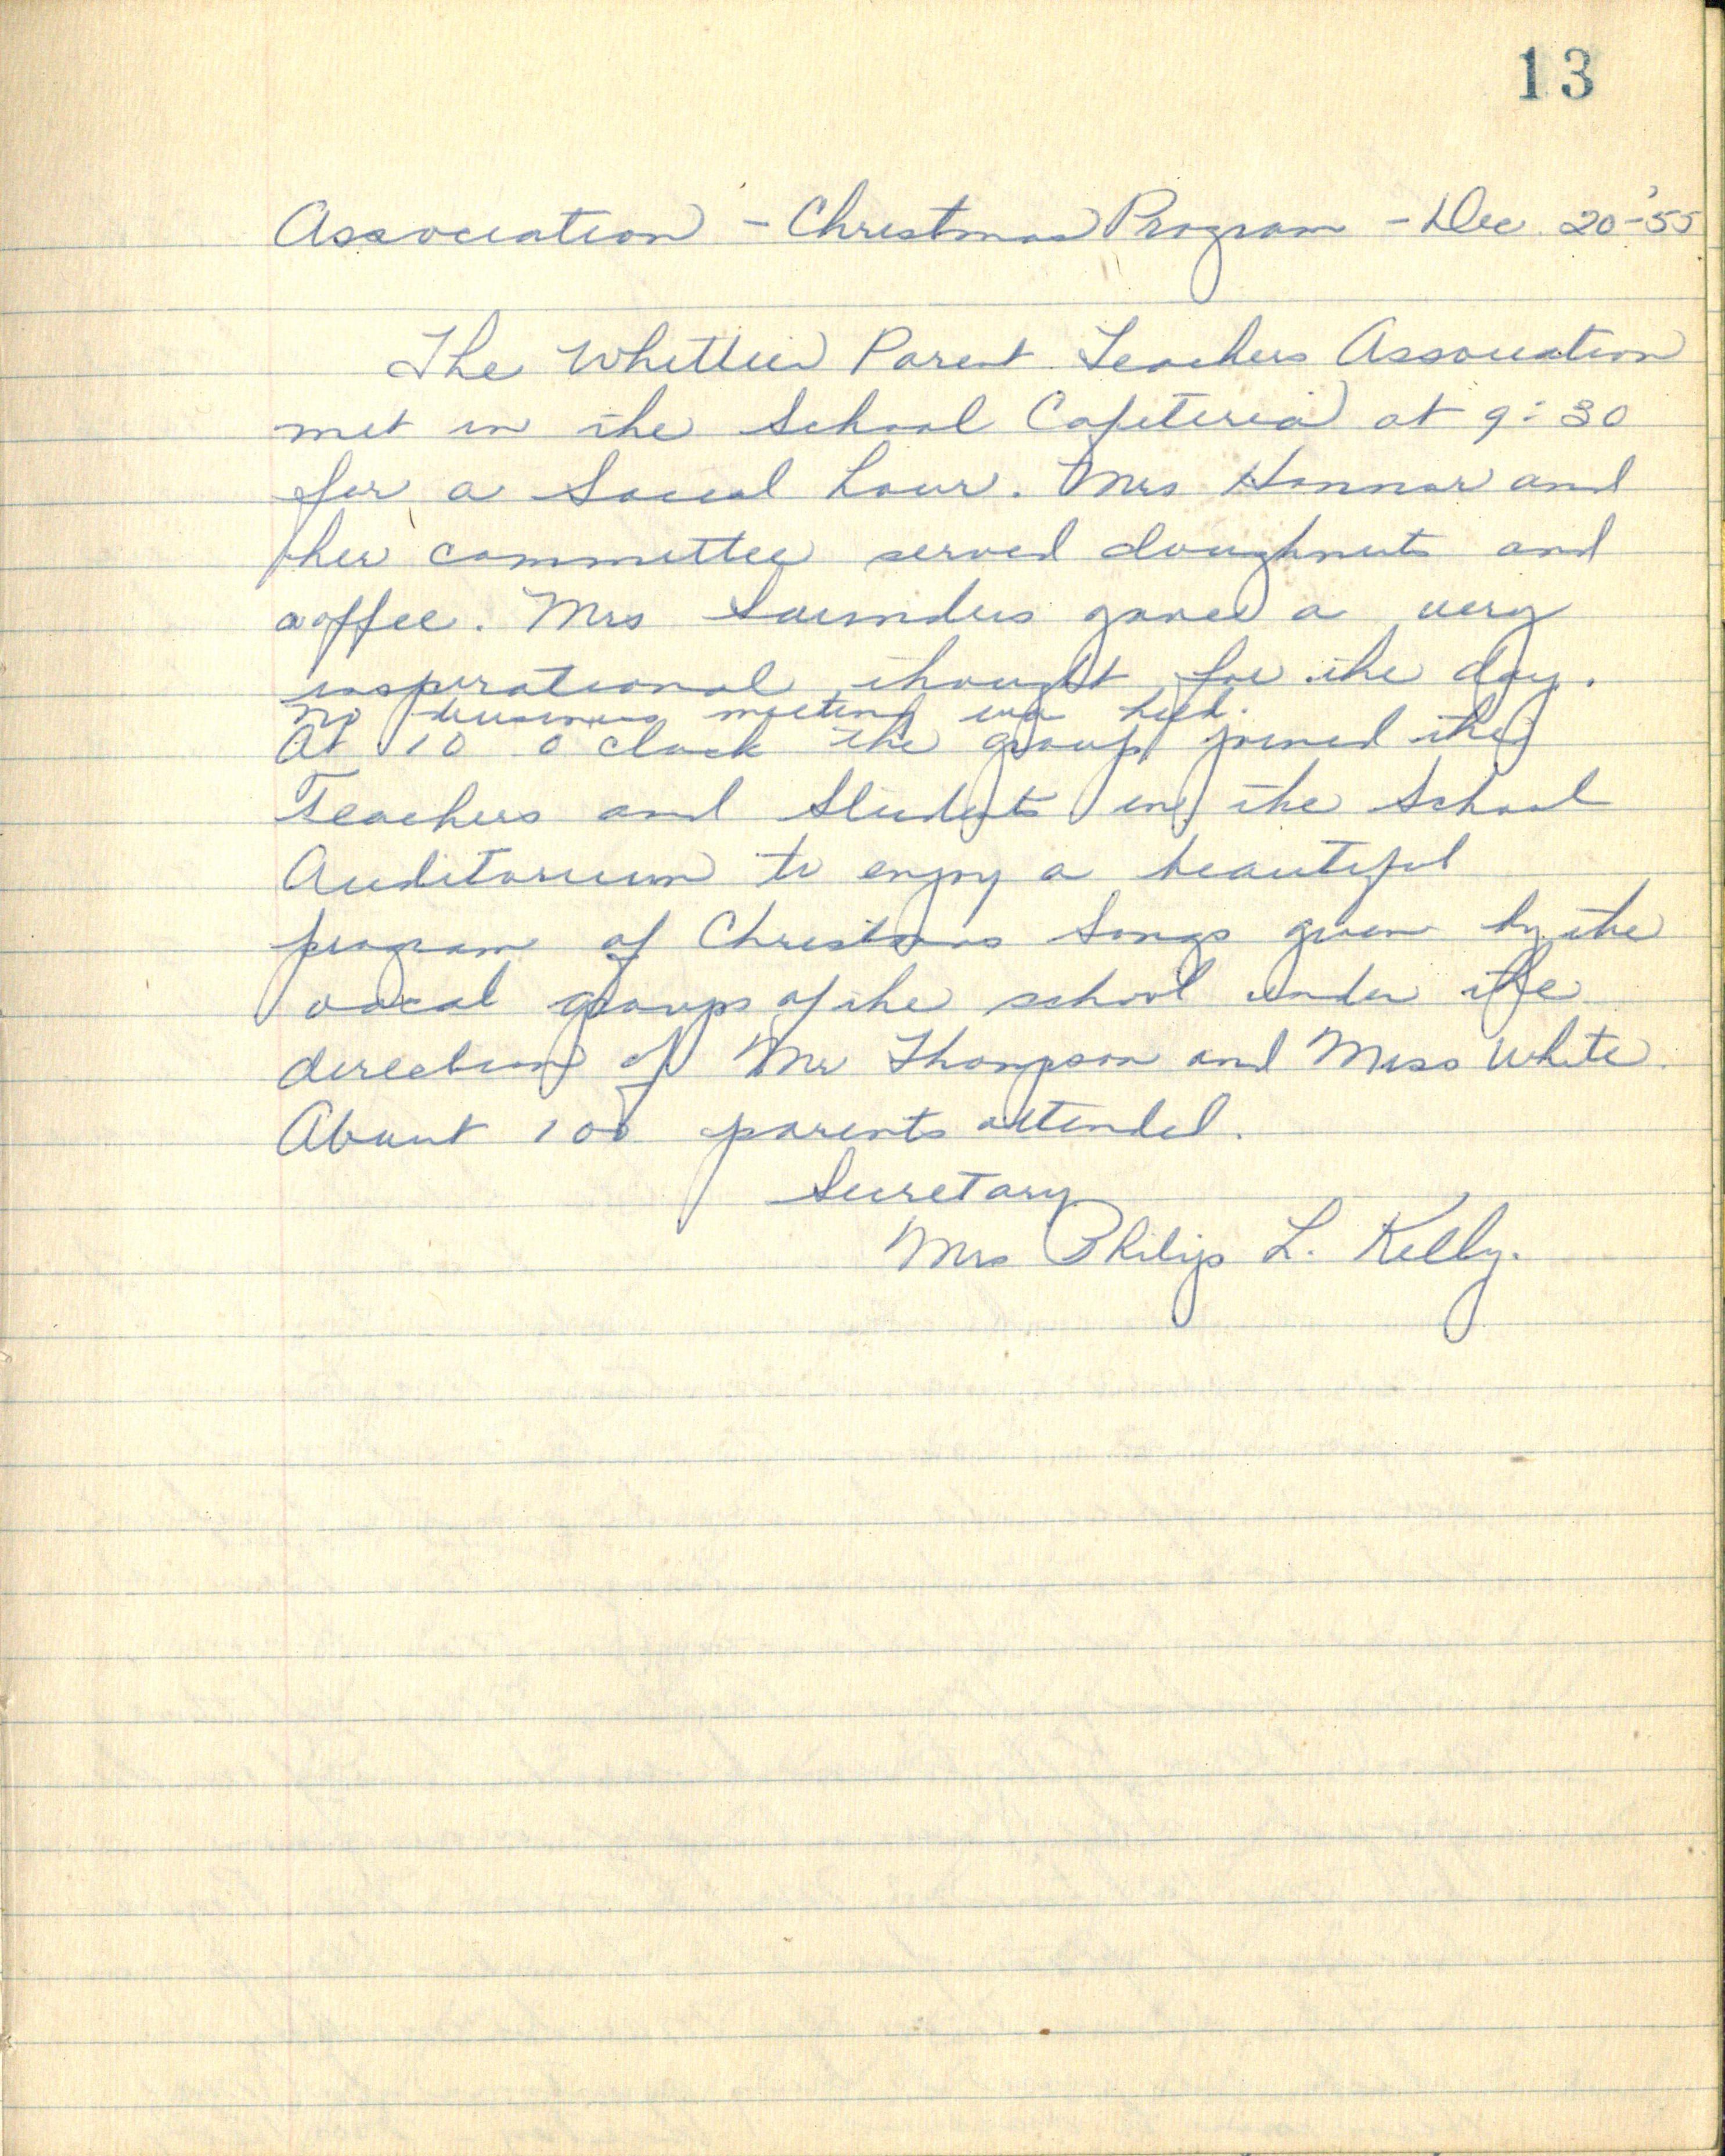 13
Association - Christmas Program - Dec. 20-'55
The Whittier Parent Teachers Association
met in the School Cafeteria at 9:30
for a Social hour. Mrs Hannar and
her committee served doughnuts and
coffee. Mrs Saunders gave a very
inspirational thought for the day.
No business meeting was held.
At 10 o clock the group joined the
Teachers and Students in the School
Auditorium to enjoy a beautiful
program of Christmas Songs given by the
vocal groups of the school under the
direction of Mr Thompson and Miss White.
About 100 parents attended.
Secretary
Mrs Philip L. Kelly.